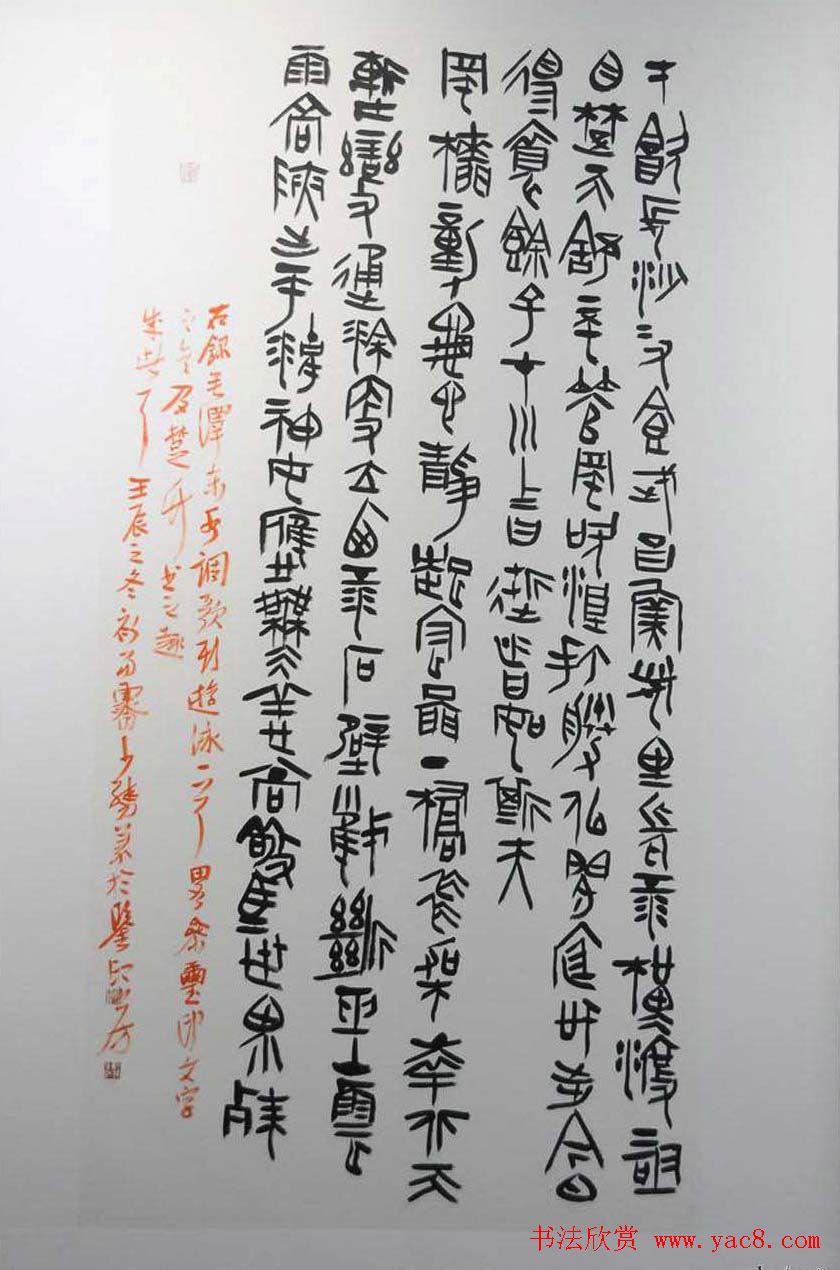 才飲長沙水又食武昌魚萬里長江橫渡極
目楚天舒不管風吹浪打勝似閒庭信步今日
得寬餘子在川上曰逝者如斯夫
風檣動龜蛇靜起宏圖一橋飛架南北天
塹變通途更立西江石壁截斷巫山雲
雨高峽出平湖神女應無恙當驚世界殊
右錄毛澤東水調歌頭游泳一首 參璽印文字
及楚 書之趣
壬辰之冬 於
书法欣赏 www.yac8.com